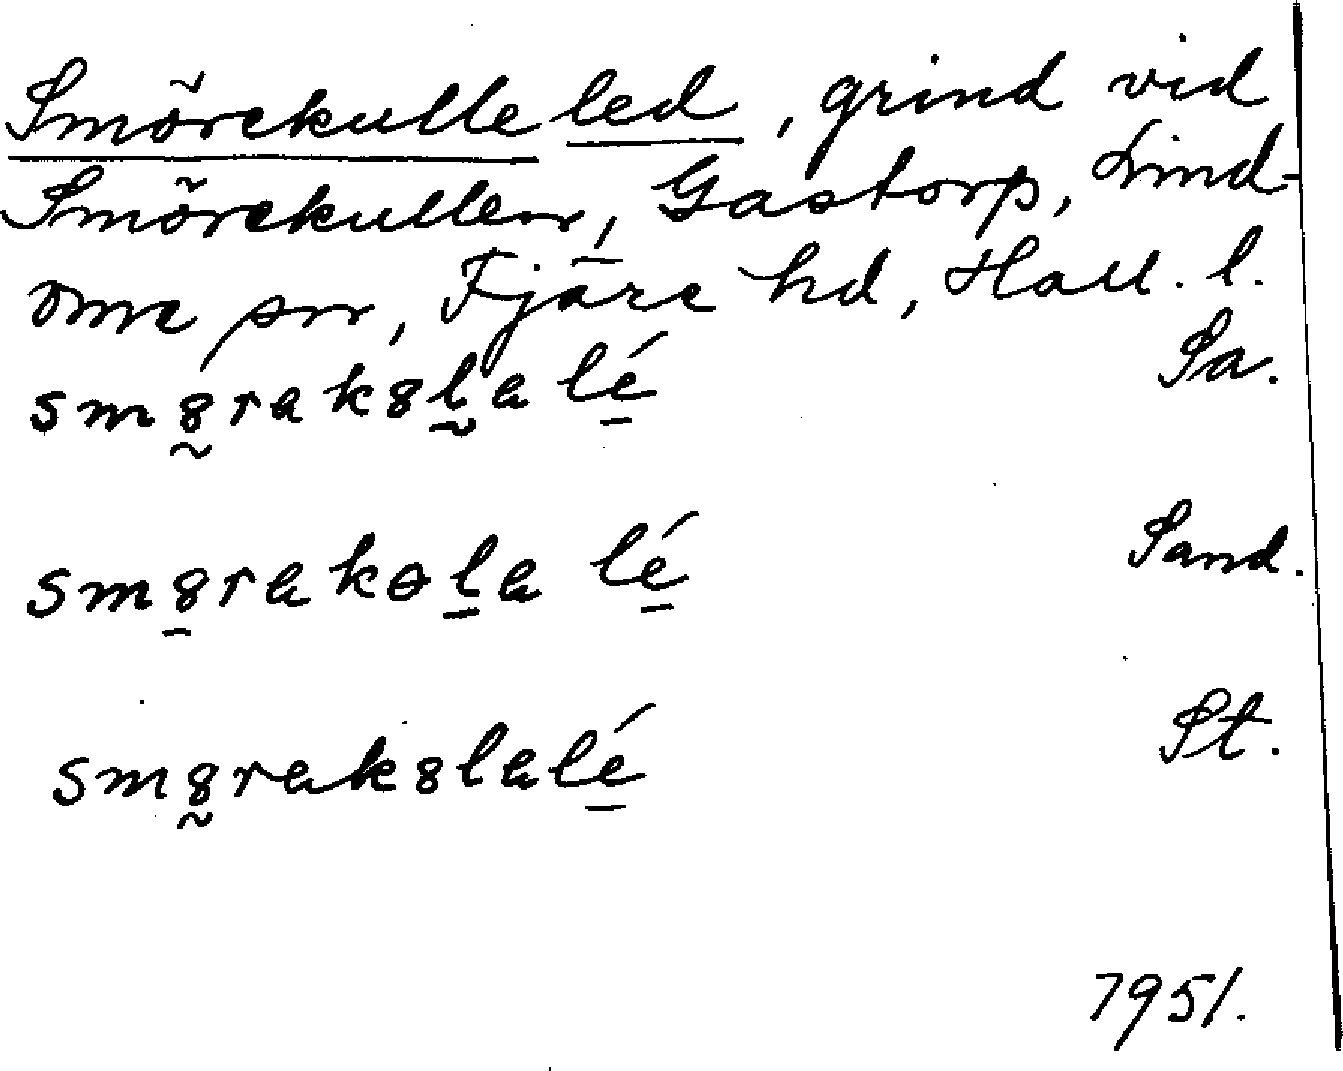 Smörekulle led, grind vid
Smörekullen, Gastorp, Lind-
ome sn, Fjäre hd, Hall. l.
sm8rak8la lé Sa.
sm8rakɵla lé Sand.
sm8rak8lalé St.
7951.